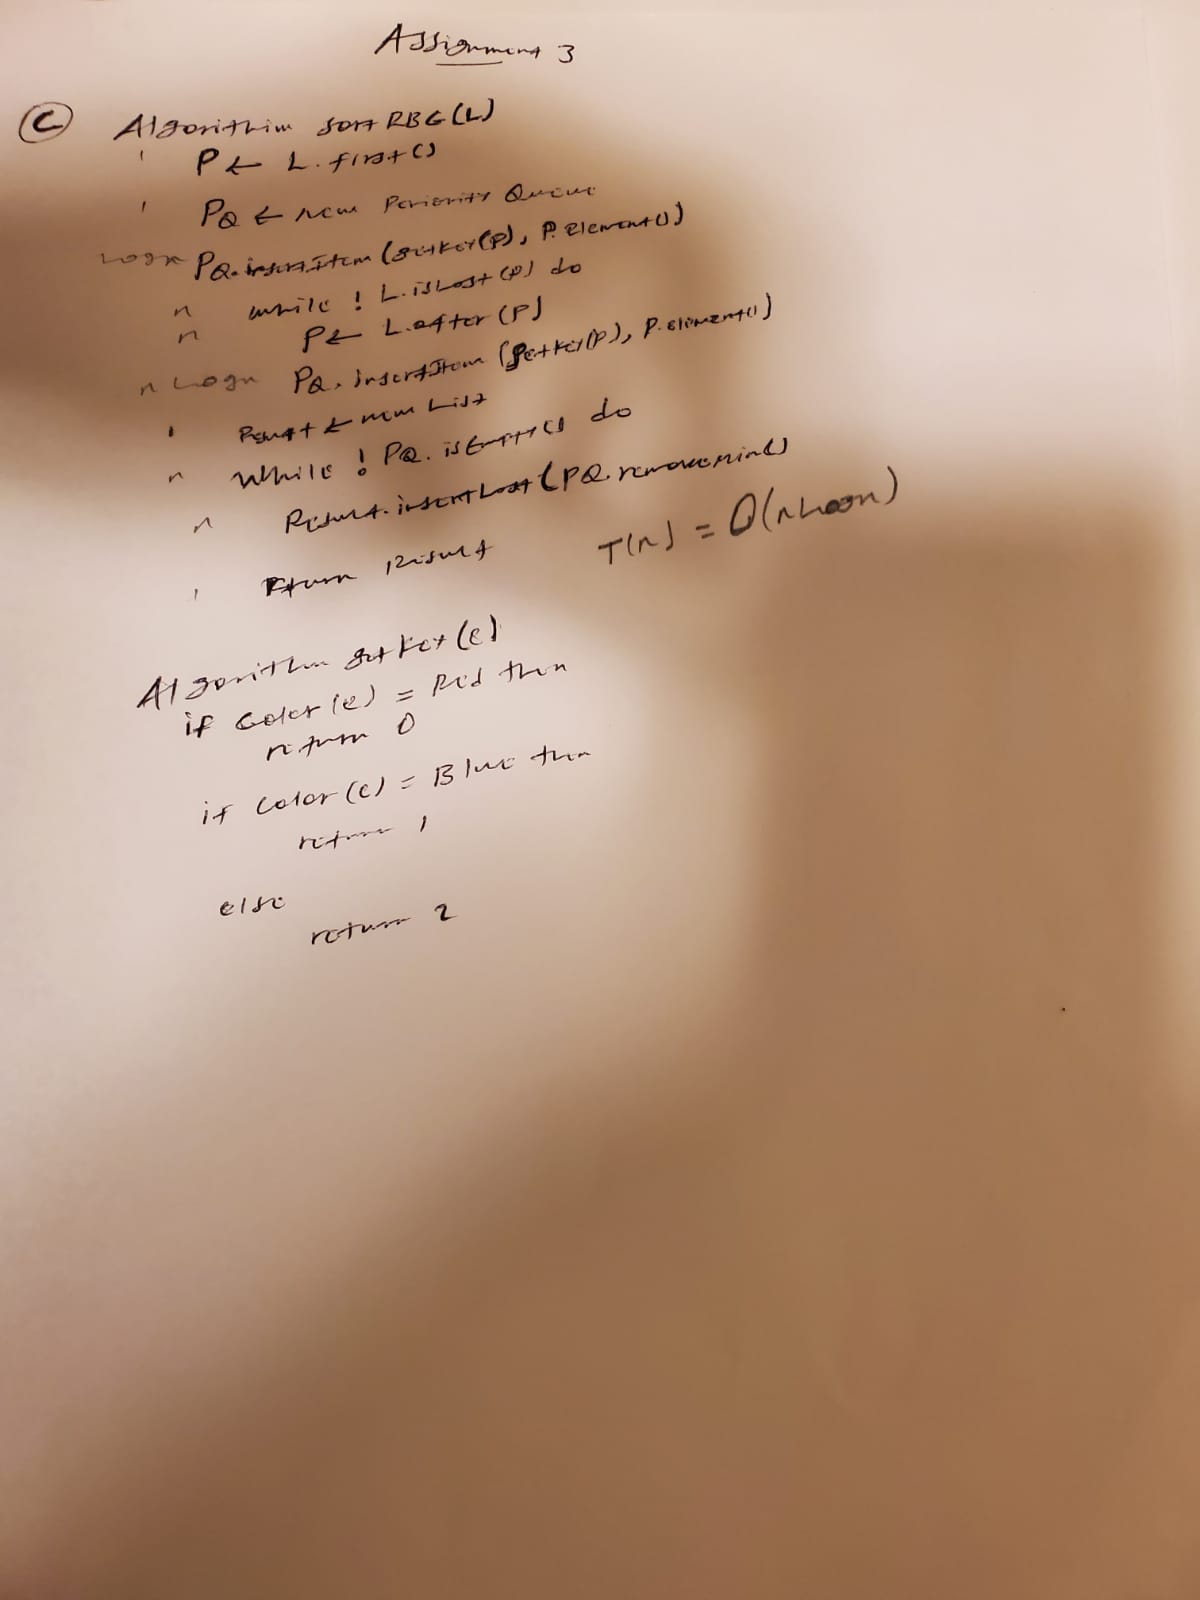 Assignment 3
C Algorithim sort RBG(L)
1 P ← L.first()
1 PQ ← new Periority Queue
Logn PQ.insertItem (getkey(p), P.Element())
n while ! L.isLast (p) do
n P ← L.after (P)
n Logn PQ.insertItem (getkey(p), P.element())
1 Result ← new List
n While ! PQ.isEmpty() do
n Result.insertLast (PQ.removemin()
1 Return Result
T(n) = O(n Logn)
Algorithm getkey(e)
if Color (e) = Red then
return 0
if Color (e) = Blue then
return 1
else
return 2